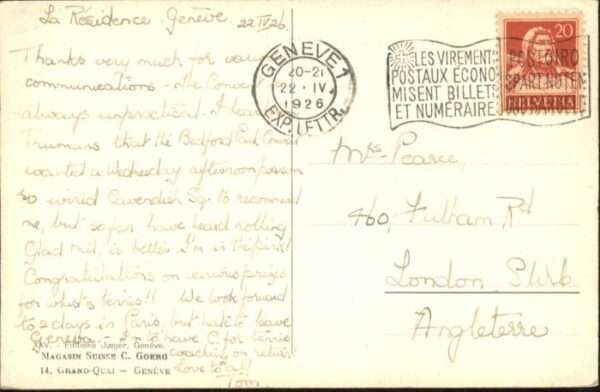 La Résidence, Genève. 22.IV.26.
Thanks very much for various
communications - the Convent
always unpractical. I learn
that the Bedford Park Council
wanted a Wednesday afternoon person
so wired Cavendish Sq. to recommend
me, but so far have heard nothing
Glad is better
Congratulations on various prizes
for whist & tennis!! We look forward
to 2 days in Paris, but hate to leave
Geneva. to have C. for tennis
coaching on return
Love to all
Editions Jaeger, Genève.
MAGASIN SUISSE C. GOERG
14, GRAND-QUAI – GENÈVE
GENÈVE 1
20-21
22.IV.
1926
EXP. LETTR.
LES VIREMENTS
POSTAUX ÉCONO
MISENT BILLETS
ET NUMÉRAIRE
20
HELVETIA
Mrs Pearce,
460, Fulham Rd
London S.W.6.
Angleterre